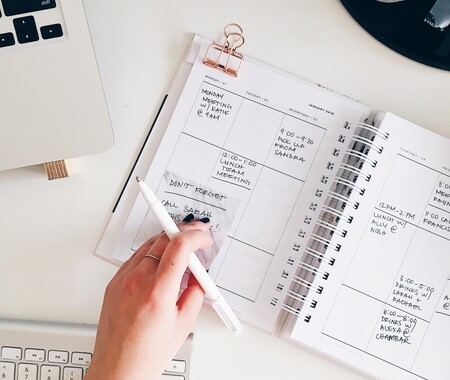 JANUARY 2018
MONDAY
TUESDAY
WEDNESDAY
MONDAY
MEETING
W/ KATIE
@ 9AM
9:00-9:30
PICK UP
FROM
SANDRA
12:00-1:00
LUNCH
TEAM
MEETING
DON'T FORGET
CALL SARAH
THURSDAY
12PM-2PM
LUNCH W/
ALLY @
NOSH
3:00-5:00
DRINKS W/
SARAH +
RACHAEL
6:00-8:00
DRINKS W/
ALEXA @
CHAMBAR